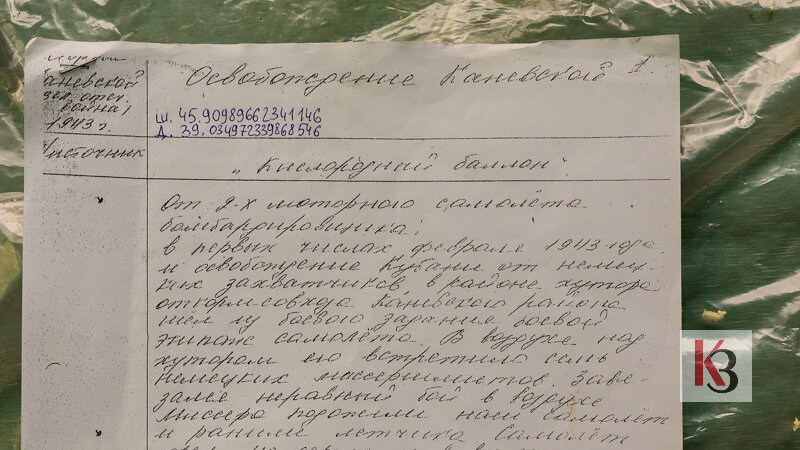 Освобождение Каневской 1.
аневской
война)
1943 г.
ш. 45.90989662341146
д. 39.034972339868546
источник
„Кислородный баллон"
От 2-х моторного самолёта
бомбардировщика.
в первых числах феврале 1943 года
и освобождение Кубани от немец-
ких захватчиков, в районе хутора
откормсовхоза Каневского района
шёл из боевого задания боевой
экипаж самолёта. В воздухе над
хутором его встретило семь
немецких мессершмистов. Завя-
зался неравный бой в воздухе
миссера подожгли наш самолёт
и ранили летчика. Самолёт
КЗ